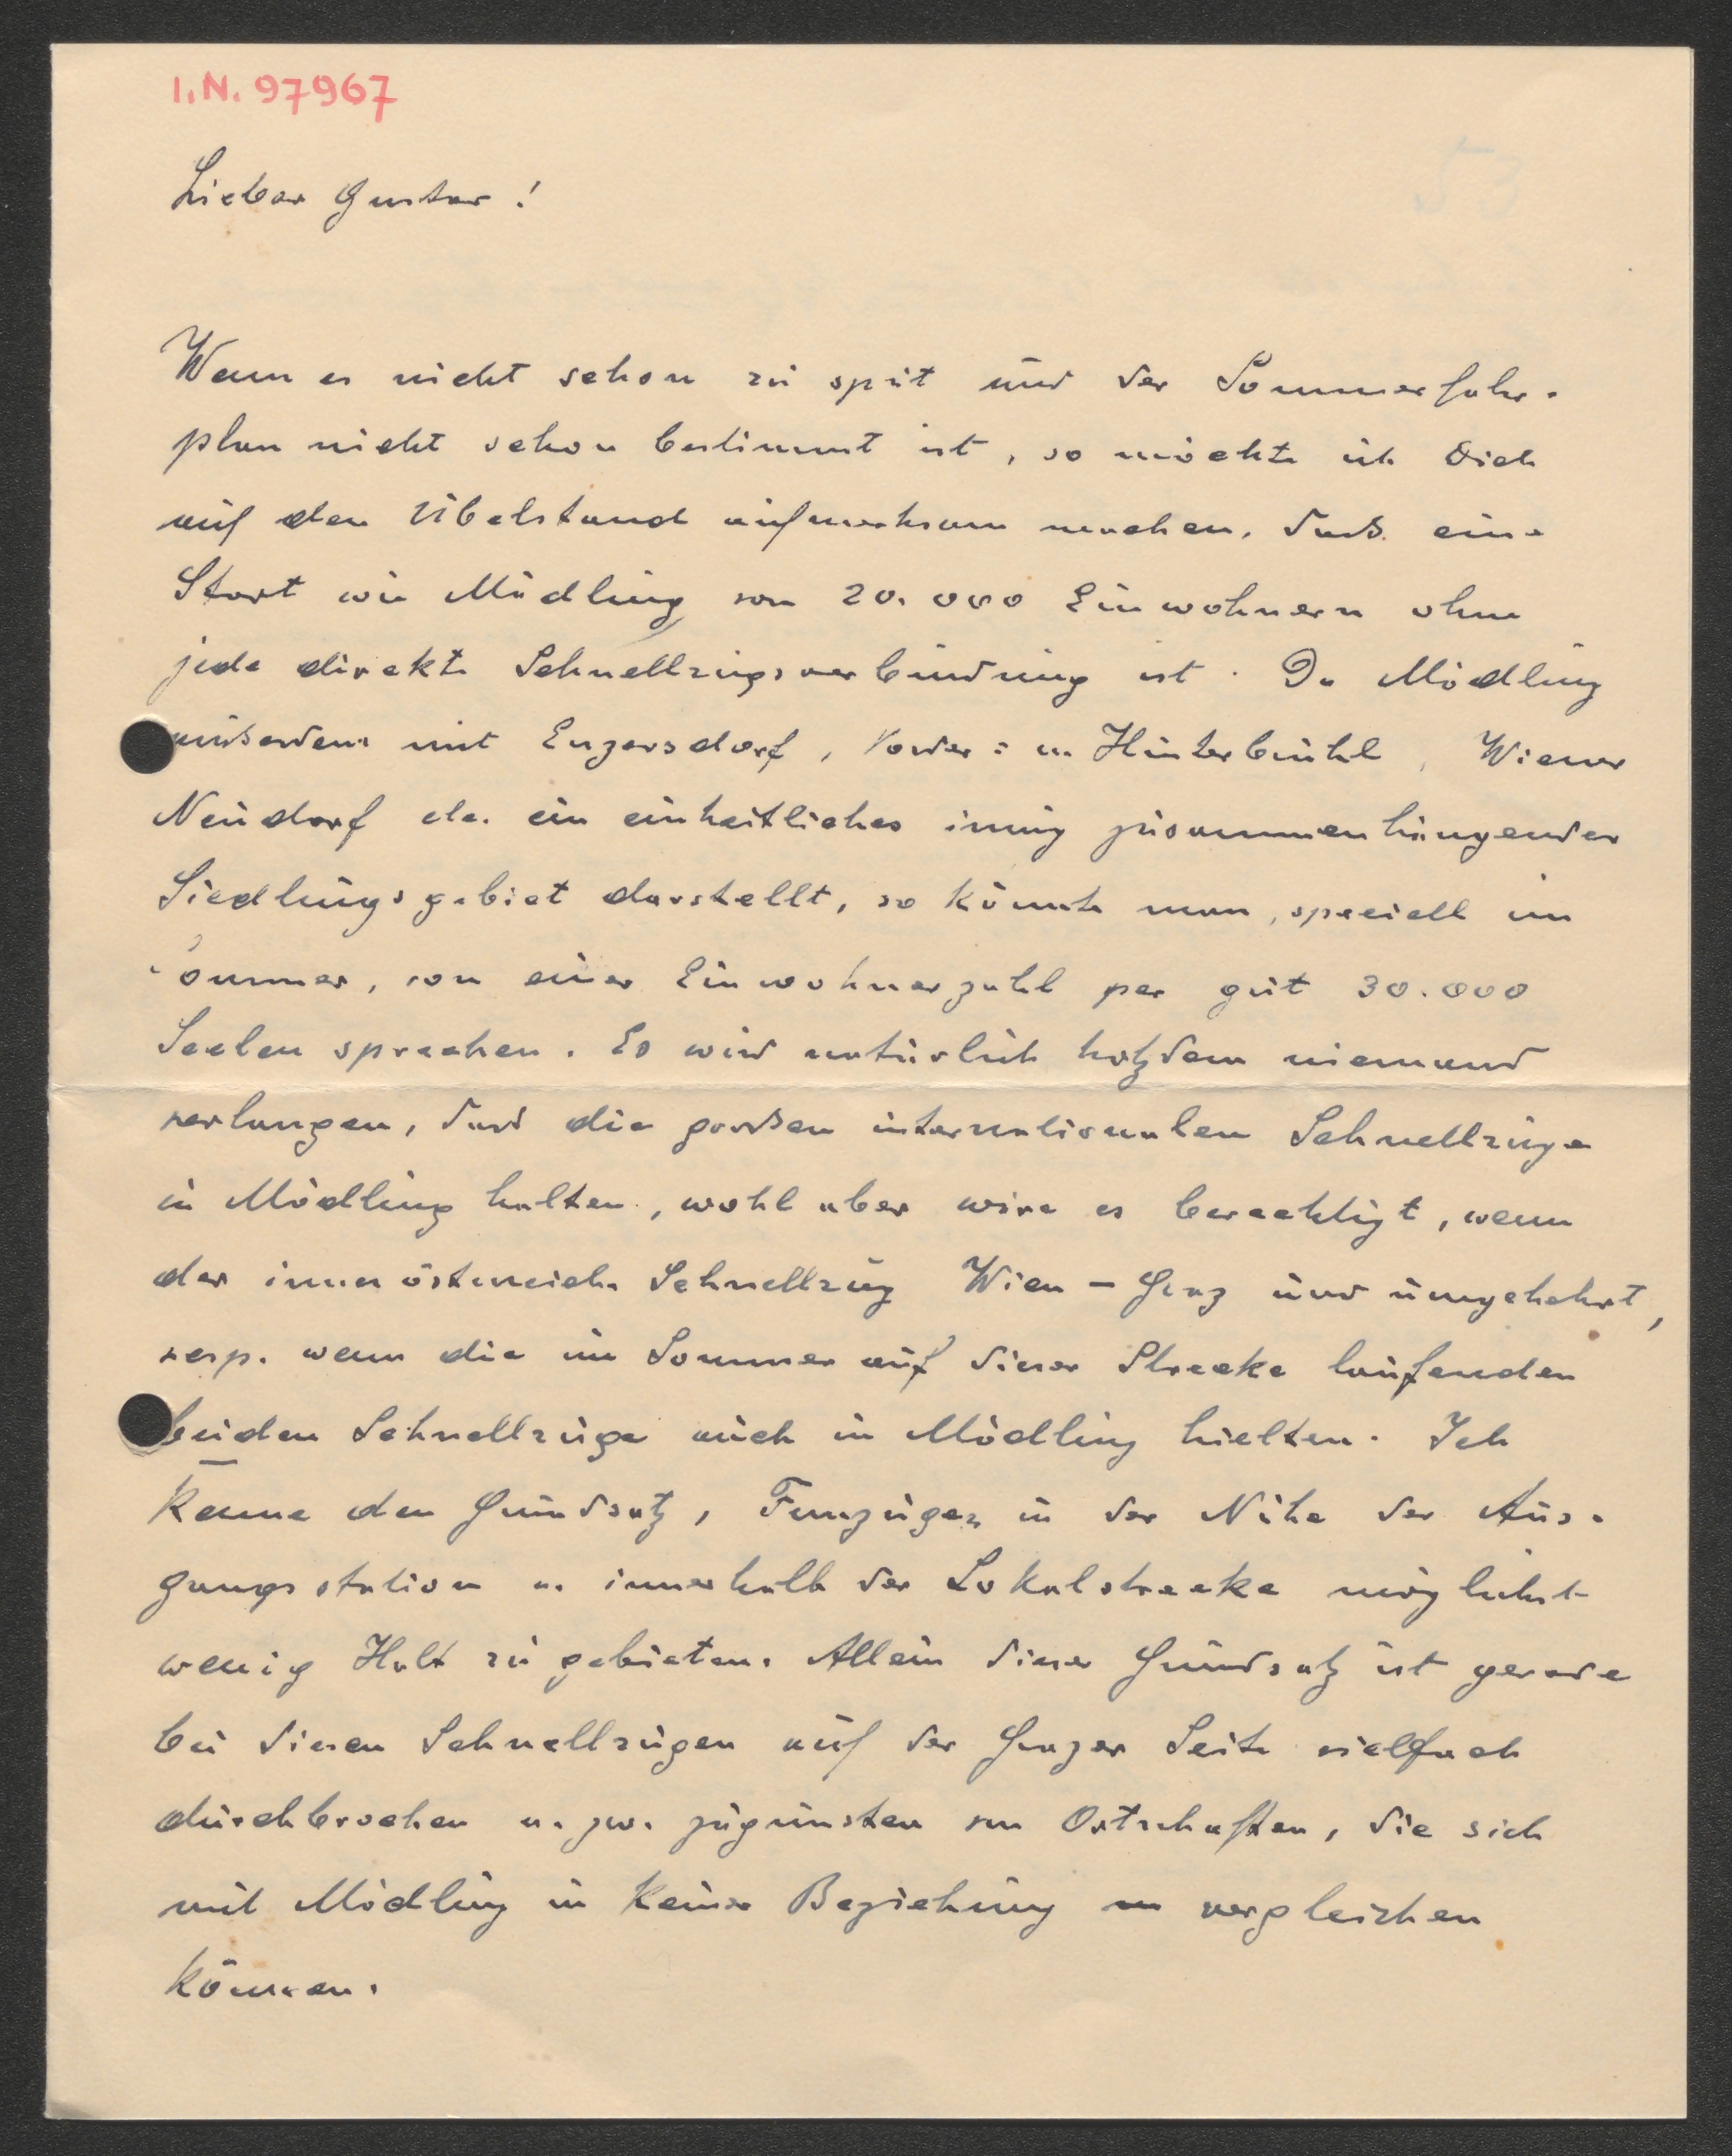 I.N. 97967
Lieber Gustav!
Wenn es nicht schon zu spät und der Sommerfahr-
plan nicht schon bestimmt ist, so möchte ich Dich
auf den Übelstand aufmerksam machen, dass eine
Stadt wie Mödling von 20.000 Einwohnern ohne
jede direkte Schnellzugsverbindung ist. Da Mödling
ausserdem mit Enzersdorf, Vorder- u. Hinterbrühl, Wiener
Neudorf etc. ein einheitliches innig zusammenhängendes
Siedlungsgebiet darstellt, so könnte man, speciell im
Sommer, von einer Einwohnerzahl per gut 30.000
Seelen sprechen. Es wird natürlich trotzdem niemand
verlangen, dass die großen internationalen Schnellzüge
in Mödling halten, wohl aber wäre es berechtigt, wenn
der innerösterreich. Schnellzug Wien – Graz und umgekehrt,
resp. wenn die im Sommer auf dieser Strecke laufenden
beiden Schnellzüge auch in Mödling hielten. Ich
kenne den Grundsatz, Fernzügen in der Nähe der Aus-
gangsstation u. innerhalb der Lokalstrecke möglichst
wenig Halt zu gebieten. Allein dieser Grundsatz ist gerade
bei diesen Schnellzügen auf der Grazer Seite vielfach
durchbrochen u. zw. zugunsten von Ortschaften, die sich
mit Mödling in keiner Beziehung vergleichen
können.